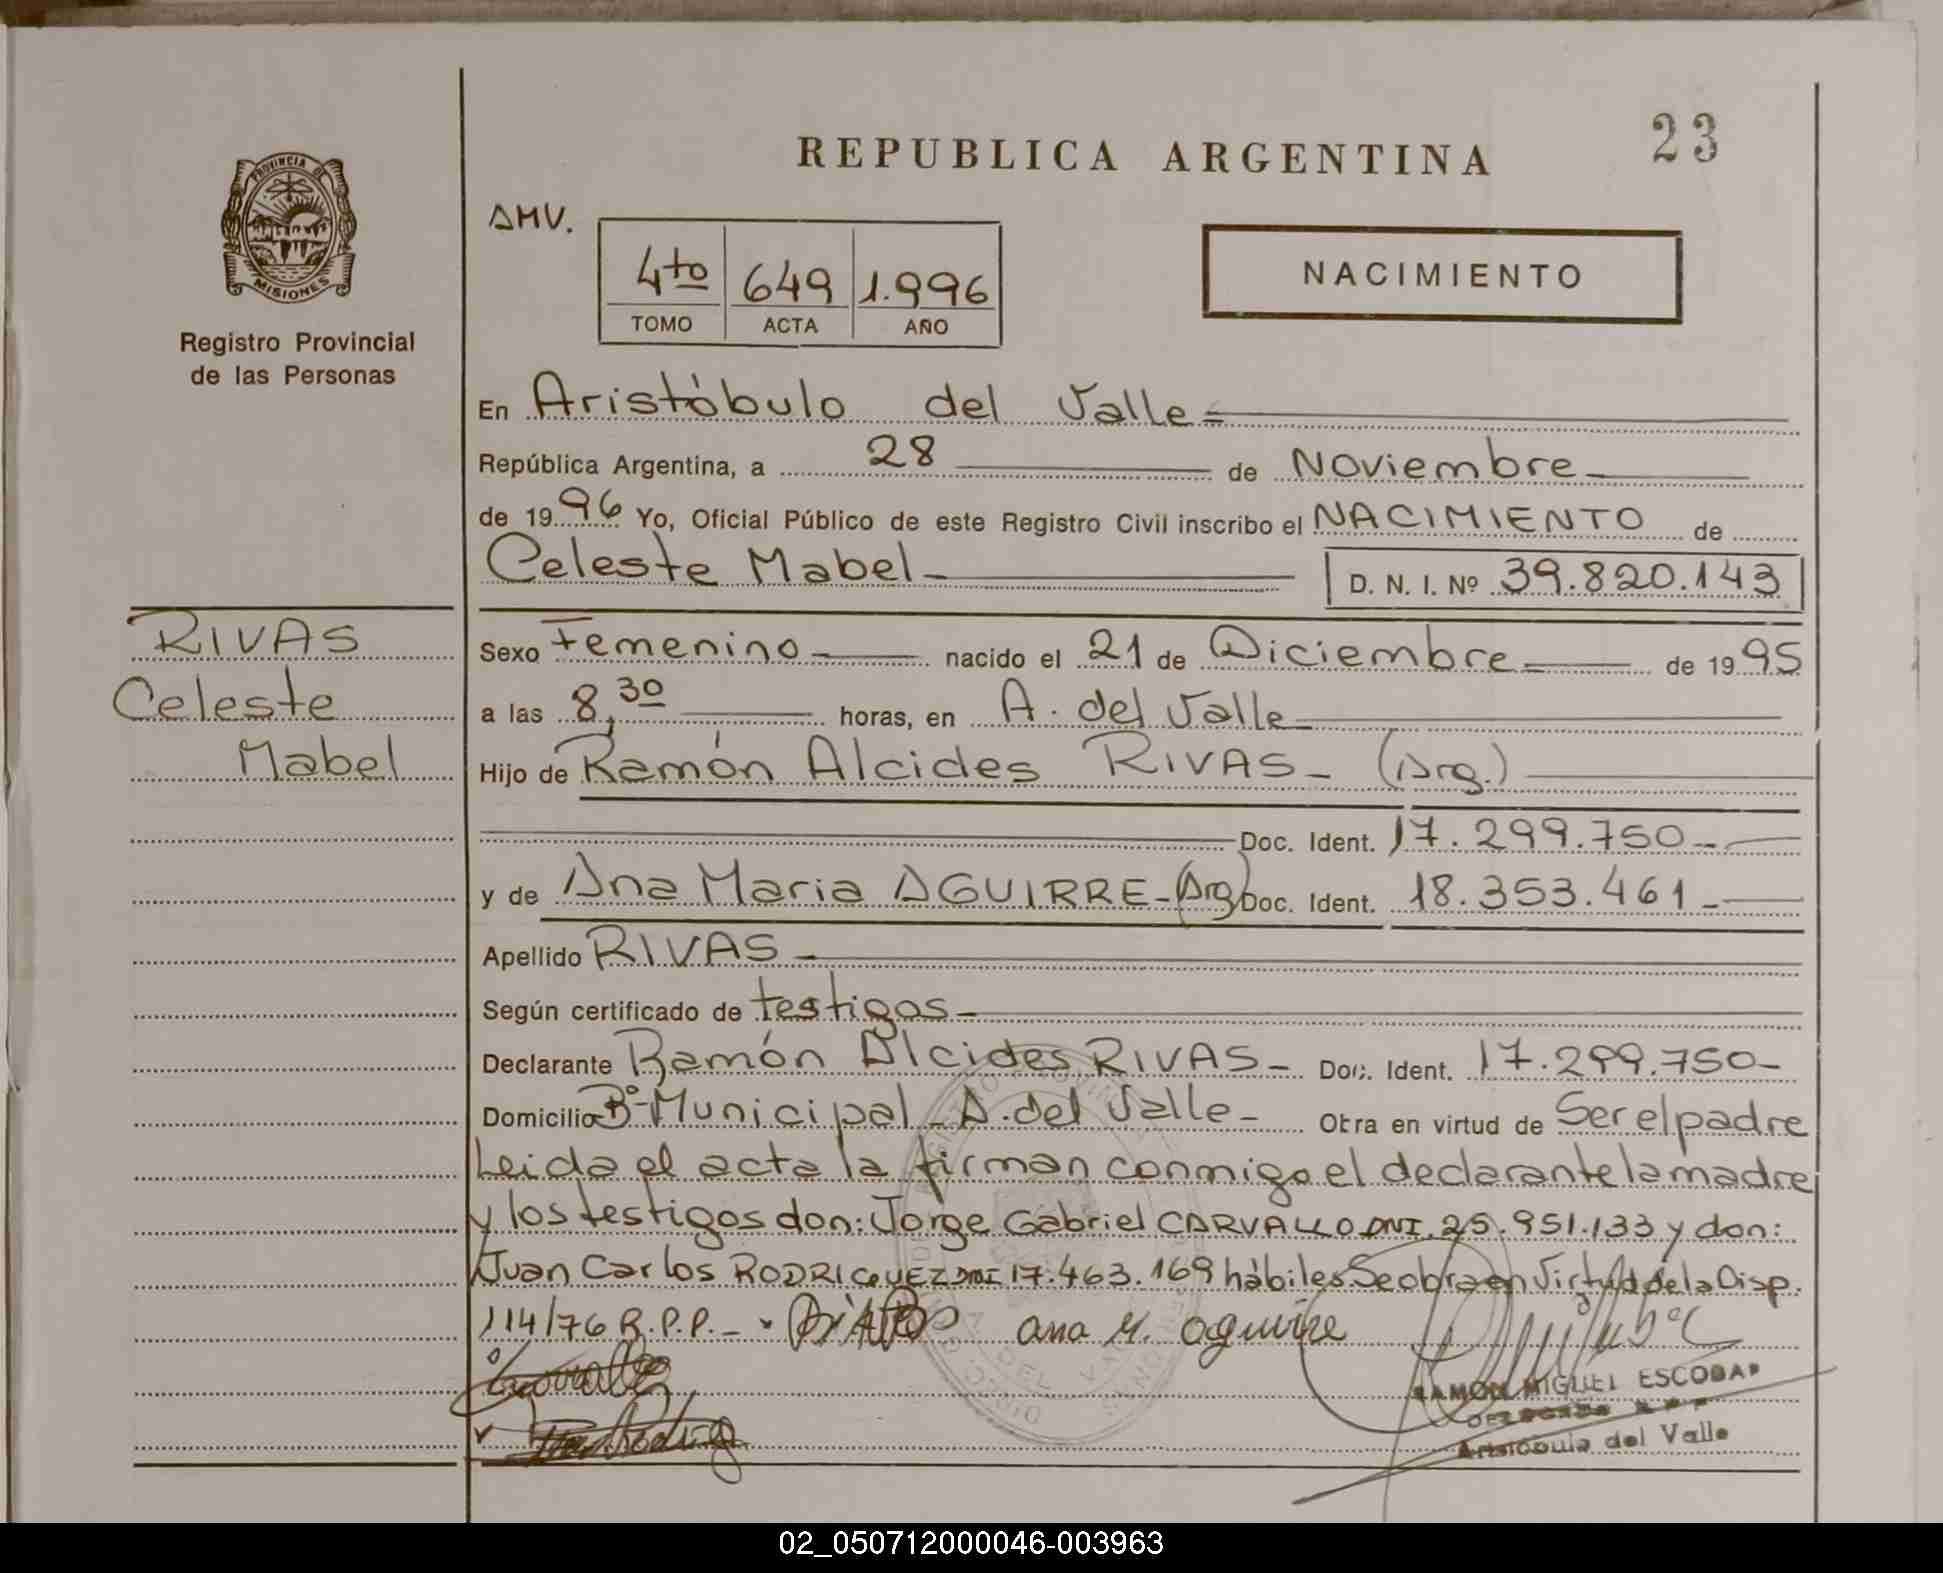 23
REPUBLICA ARGENTINA
PROVINCIA DE
MISIONES
AMV.
4to 649 1.996
TOMO ACTA AÑO
NACIMIENTO
Registro Provincial
de las Personas
En Aristóbulo del Valle=
República Argentina, a 28 de Noviembre
de 1996 Yo, Oficial Público de este Registro Civil inscribo el NACIMIENTO de
Celeste Mabel D. N. I. Nº 39.820.143
RIVAS
Celeste
Mabel
Sexo Femenino nacido el 21 de Diciembre de 1995
a las 8,30 horas, en A. del Valle
Hijo de Ramón Alcides RIVAS- (Arg.)
Doc. Ident. 17.299.750-
y de Ana Maria AGUIRRE-(Arg) Doc. Ident. 18.353.461-
Apellido RIVAS-
Según certificado de testigos-
Declarante Ramón Alcides RIVAS- Doc. Ident. 17.299.750-
Domicilio Bº-Municipal-A.del Valle- Otra en virtud de Ser el padre
Leida el acta la firman conmigo el declarante la madre
y los testigos don: Jorge Gabriel CARVALLO DNI. 25.951.133 y don:
Juan Carlos RODRIGUEZ DNI 17.463.169 hábiles. Se obra en Virtud de la Disp.
114/76 R.P.P.-
Ana M. aguirre
RAMON MIGUEL ESCOBAR
DELEGADO
Aristóbulo del Valle
02_050712000046-003963